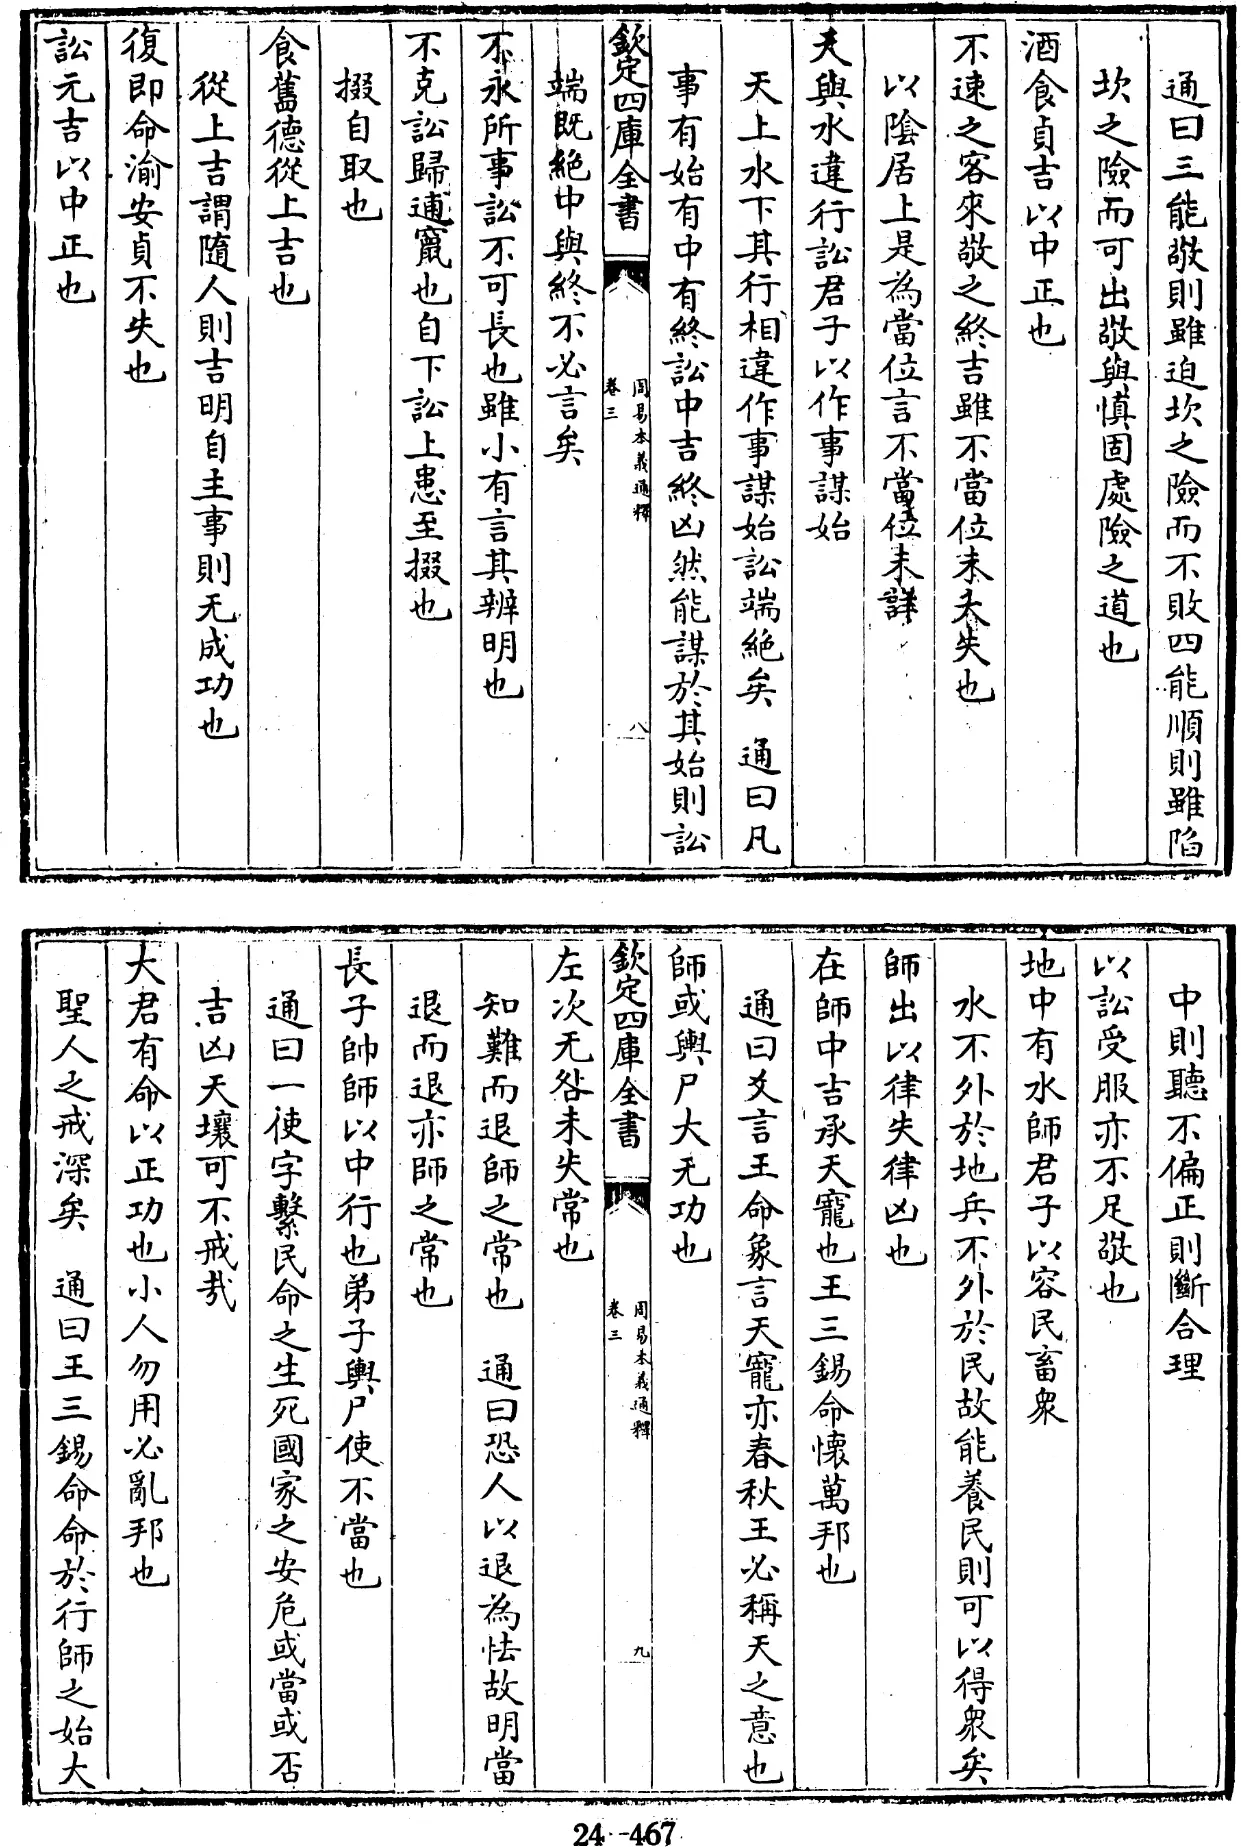 通曰三能敬則雖迫坎之險而不敗四能順則雖陷
坎之險而可出敬與慎固處險之道也
酒食貞吉以中正也
不速之客來敬之終吉雖不當位未大失也
以陰居上是為當位言不當位未詳
天與水違行訟君子以作事謀始
天上水下其行相違作事謀始訟端絶矣　通曰凡
事有始有中有終訟中吉終凶然能謀於其始則訟
欽定四庫全書
周易本義通釋
卷三
八
端既絶中與終不必言矣
不永所事訟不可長也雖小有言其辨明也
不克訟歸逋竄也自下訟上患至掇也
掇自取也
食舊德從上吉也
從上吉謂隨人則吉明自主事則无成功也
復即命渝安貞不失也
訟元吉以中正也
中則聽不偏正則斷合理
以訟受服亦不足敬也
地中有水師君子以容民畜衆
水不外於地兵不外於民故能養民則可以得衆矣
師出以律失律凶也
在師中吉承天寵也王三錫命懷萬邦也
通曰爻言王命象言天寵亦春秋王必稱天之意也
師或輿尸大无功也
欽定四庫全書
周易本義通釋
卷三
九
左次无咎未失常也
知難而退師之常也　通曰恐人以退為怯故明當
退而退亦師之常也
長子帥師以中行也弟子輿尸使不當也
通曰一使字繫民命之生死國家之安危或當或否
吉凶天壤可不戒哉
大君有命以正功也小人勿用必亂邦也
聖人之戒深矣　通曰王三錫命命於行師之始大
24-467